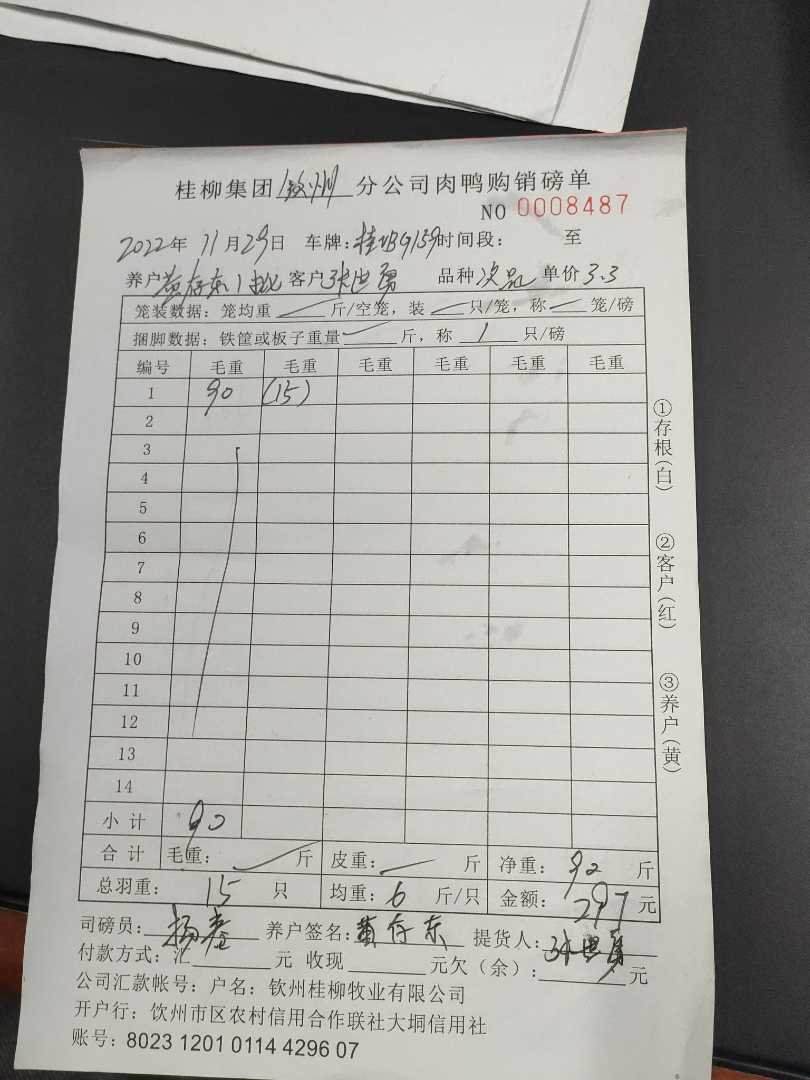 桂柳集团 钦州 分公司肉鸭购销磅单
NO 0008487
2022年 11月29日 车牌: 时间段: 至
养户 黄存东 客户 张世勇 品种 次品 单价 3.3
笼装数据: 笼均重 斤/空笼, 装 只/笼, 称 笼/磅
捆脚数据: 铁筐或板子重量 斤, 称 1 只/磅
编号 毛重 毛重 毛重 毛重 毛重 毛重
1 90 (15)
2
3
4
5
6
7
8
9
10
11
12
13
14
小计 90
合计 毛重: 斤 皮重: 斤 净重: 90 斤
总羽重: 15 只 均重: 6 斤/只 金额: 297 元
司磅员: 杨 养户签名: 黄存东 提货人: 张世勇
付款方式: 汇 元 收现 元欠(余): 元
公司汇款帐号: 户名: 钦州桂柳牧业有限公司
开户行: 钦州市区农村信用合作联社大垌信用社
账号: 8023 1201 0114 4296 07
①存根(白)
②客户(红)
③养户(黄)